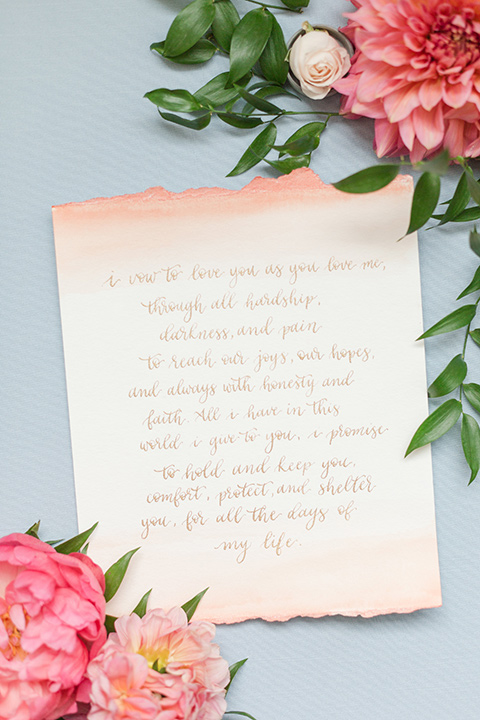 i vow to love you as you love me,
through all hardship,
darkness, and pain
to reach our joys, our hopes,
and always with honesty and
faith. All i have in this
world i give to you, i promise
to hold and keep you,
comfort, protect, and shelter
you, for all the days of
my life.